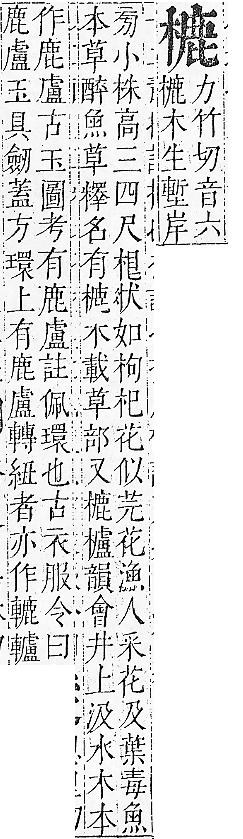 樚
力竹切音六
樚木生塹岸
旁小株高三四尺根狀如枸杞花似芫花漁人采花及葉毒魚
本草醉魚草釋名有樚木載草部又樚櫨韻會井上汲水木本
作鹿盧古玉圖考有鹿盧註佩環也古衣服令曰
鹿盧玉具劒蓋方環上有鹿盧轉紐者亦作轆轤